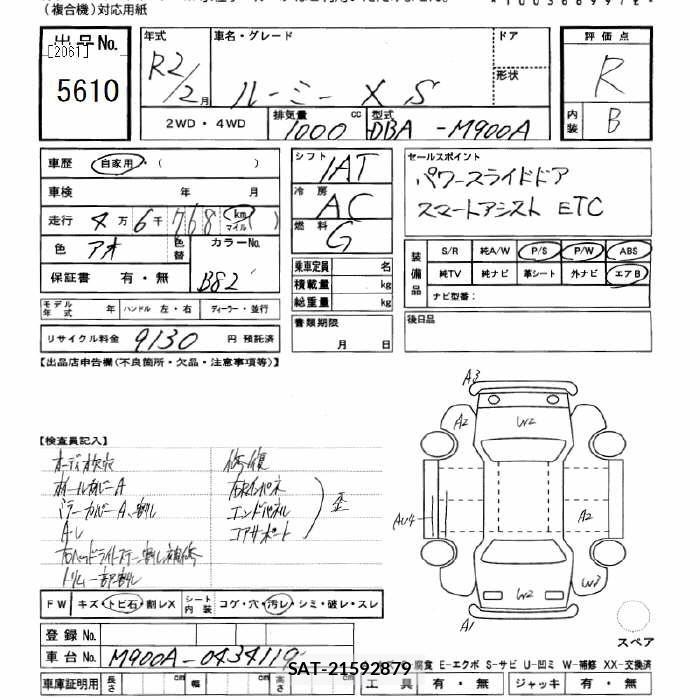 (複合機)対応用紙
出品No.
[2061]
5610
年式 R2/2月
車名・グレード ルーミー X S
ドア
形状
2WD・4WD
排気量 1000 cc
型式 DBA-M900A
評価点 R
内装 B
車歴 自家用・( )
車検 年 月
走行 4万6千768 km マイル
色 アオ 色替
カラーNo. B82
保証書 有・無
モデル年式 年 ハンドル 左・右 ディーラー・並行
リサイクル料金 9130 円 預託済
シフト IAT
冷房 AC
燃料 G
乗車定員 名
積載量 kg
総重量 kg
書類期限
月 日
セールスポイント
パワースライドドア
スマートアシスト ETC
装備品
S/R 純A/W P/S P/W ABS
純TV 純ナビ 革シート 外ナビ エアB
ナビ型番:
後日品
【出品店申告欄(不良箇所・欠品・注意事項等)】
【検査員記入】
オーディオ欠 修復
ホイールカバーA 右Rインパネ
ミラーカバーA、割レ エンドパネル 歪
A・レ コアサポート
右ヘッドライトステー割レ補修
トリム一部割レ
A3
A2
W2
AU4
A2
W2
W3
A1
スペア
FW キズ・トビ石・割レX シート内装 コゲ・穴・汚レ・シミ・破レ・スレ
登録No.
車台No. M900A-0434119
SAT-21592879
腐食 E-エクボ S-サビ U-凹ミ W-補修 XX-交換済
車庫証明用 長さ cm 幅 cm 高さ cm
工具 有・無 ジャッキ 有・無